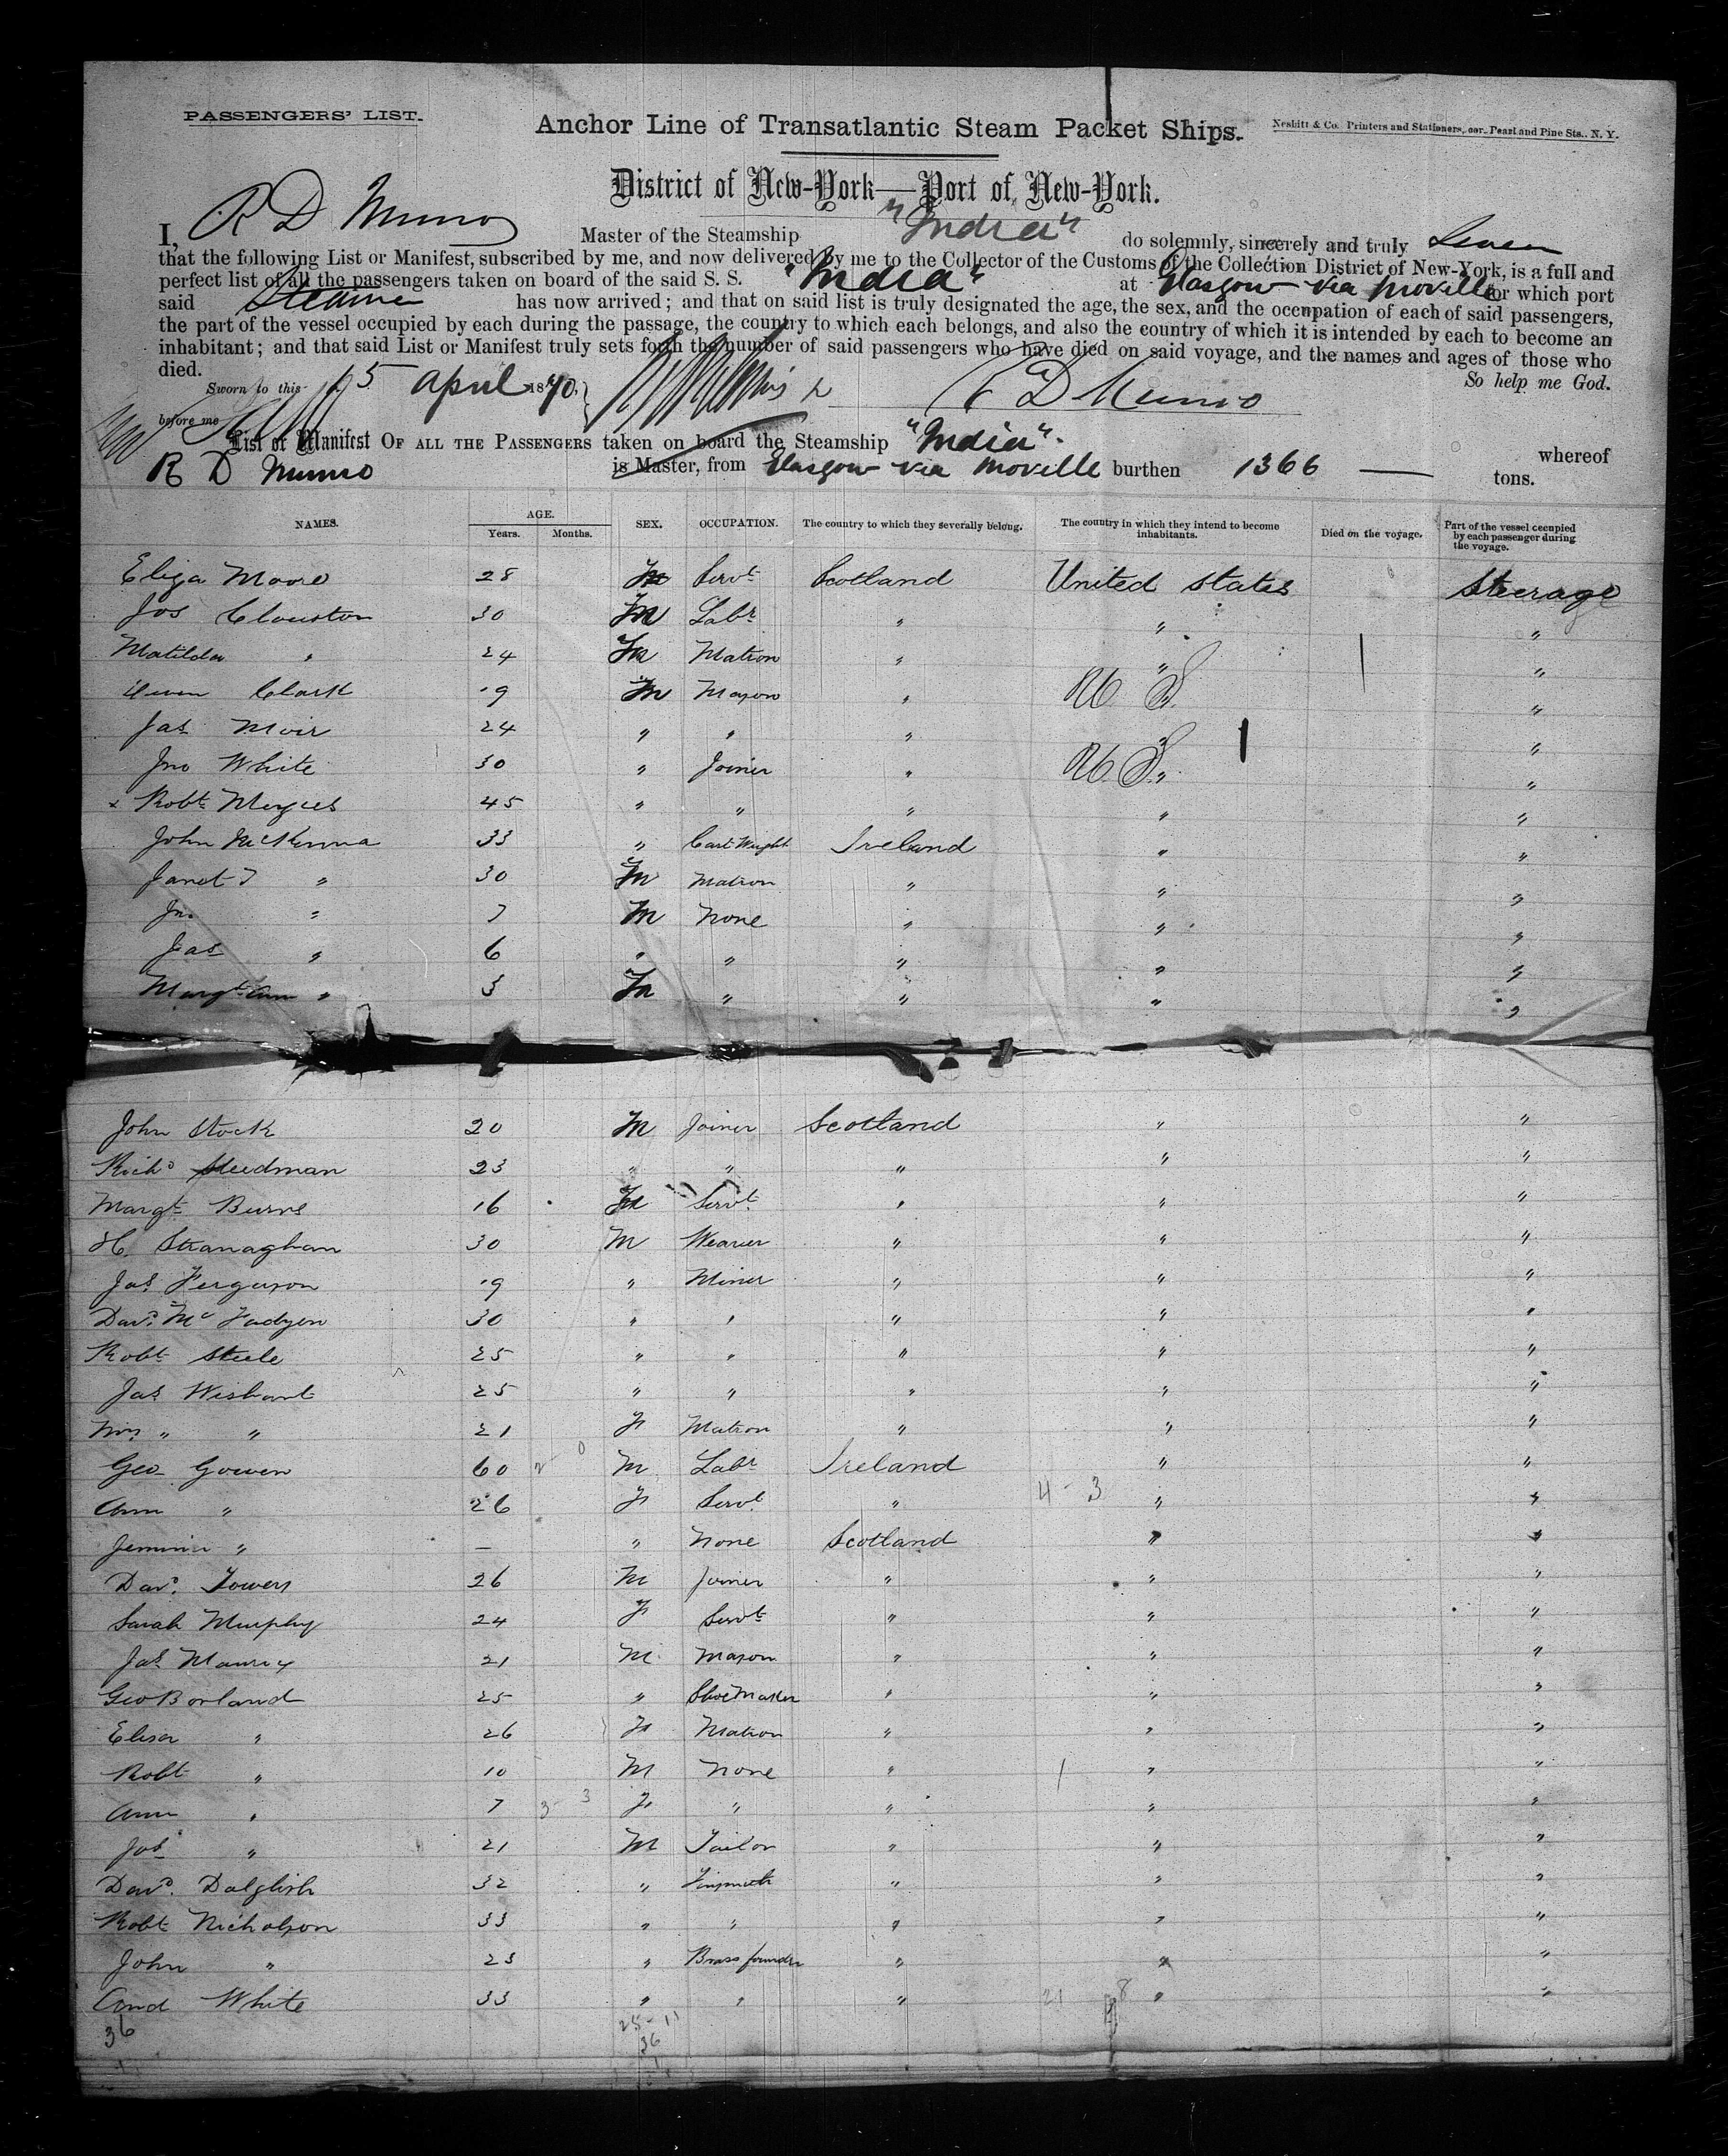 PASSENGERS' LIST.
Anchor Line of Transatlantic Steam Packet Ships.
Nesbitt & Co. Printers and Stationers, cor. Pearl and Pine Sts., N. Y.
District of New-York—Port of New-York.
I, R D Munro Master of the Steamship "India" do solemnly, sincerely and truly Swear
that the following List or Manifest, subscribed by me, and now delivered by me to the Collector of the Customs of the Collection District of New-York, is a full and
perfect list of all the passengers taken on board of the said S. S. "India" at Glasgow via Moville for which port
said Steamer has now arrived; and that on said list is truly designated the age, the sex, and the occupation of each of said passengers,
the part of the vessel occupied by each during the passage, the country to which each belongs, and also the country of which it is intended by each to become an
inhabitant; and that said List or Manifest truly sets forth the number of said passengers who have died on said voyage, and the names and ages of those who
died.
So help me God.
Sworn to this 15 April 1870,
R D Munro
before me
List or Manifest OF ALL THE PASSENGERS taken on board the Steamship "India" whereof
R D Munro is Master, from Glasgow via Moville burthen 1366 — tons.
NAMES. AGE. Years. Months. SEX. OCCUPATION. The country to which they severally belong. The country in which they intend to become inhabitants. Died on the voyage. Part of the vessel occupied by each passenger during the voyage.
Eliza Moore 28 Servt Scotland United States Steerage
Jos Clouston 30 M Labr " " "
Matilda " 24 Matron " " "
Clark 19 M Mason " U S "
Jas Moir 24 " " " " "
Jno White 30 " Joiner " U.S. " "
x Robt 45 " " " " "
John McKenna 33 " Cart Wright Ireland " "
Janet " 30 Matron " " "
Jno " 7 M None " " "
Jas " 6 " " " " "
Margt Ann " 3 " " " "
John Stock 20 M Joiner Scotland " "
Richd Steedman 23 " " " " "
Margt Burns 16 Servt " " "
H. Stranaghan 30 M Weaver " " "
Jas Ferguson 19 " Miner " " "
Davd McFadyen 30 " " " " "
Robt Steele 25 " " " " "
Jas Wishart 25 " " " " "
Mrs " " 21 F Matron " " "
Geo Gowen 60 M Labr Ireland " "
Ann " 26 F Servt " 4-3 " "
Jemima " — " None Scotland " "
Davd. Towers 26 M Joiner " " "
Sarah Murphy 24 F Servt " " "
Jas 21 M Mason " " "
Geo Borland 25 " Shoe Maker " " "
Elisa " 26 F Matron " " "
Robt " 10 M None " " "
Ann " 7 3 3 F " " " "
Jos " 21 M Tailor " " "
Davd. Dalglish 32 " " " "
Robt Nicholson 33 " " " " "
John " 23 " Brass founder " " "
And White 33 " " " 21 8 " "
36 25-11
36